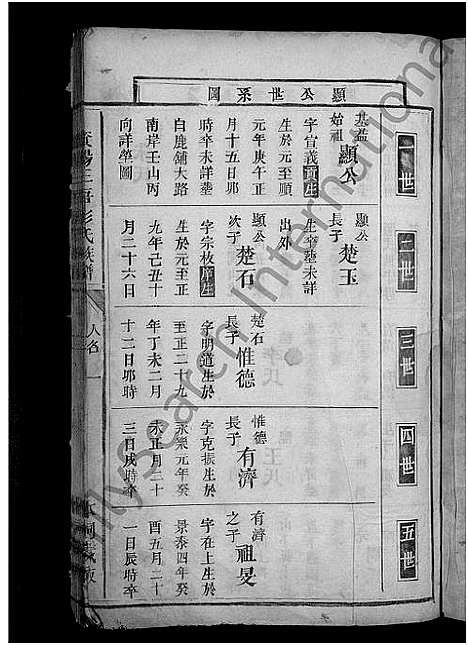 顯公世系圖
一世
二世
三世
四世
五世
基益
始祖
顯公
字宣義貢生
生於元至順
元年庚午正
月十五日卯
時卒未詳塟
白鹿鋪大路
南岸壬山丙
向詳塋圖
顯公
長子
楚玉
生卒塟未詳
出外
顯公
次子
楚石
字宗枚庠生
生於元至正
九年己丑十
月二十六日
楚石
長子
惟德
字明道生於
至正二十九
年丁未二月
十二日卯時
惟德
長子
有濟
字克振生於
永樂元年癸
未正月二十
三日戌時卒
有濟
之子
祖旻
字在上生於
景泰四年癸
酉五月二十
一日辰時卒
彭氏族譜
人名
一
MySearch International